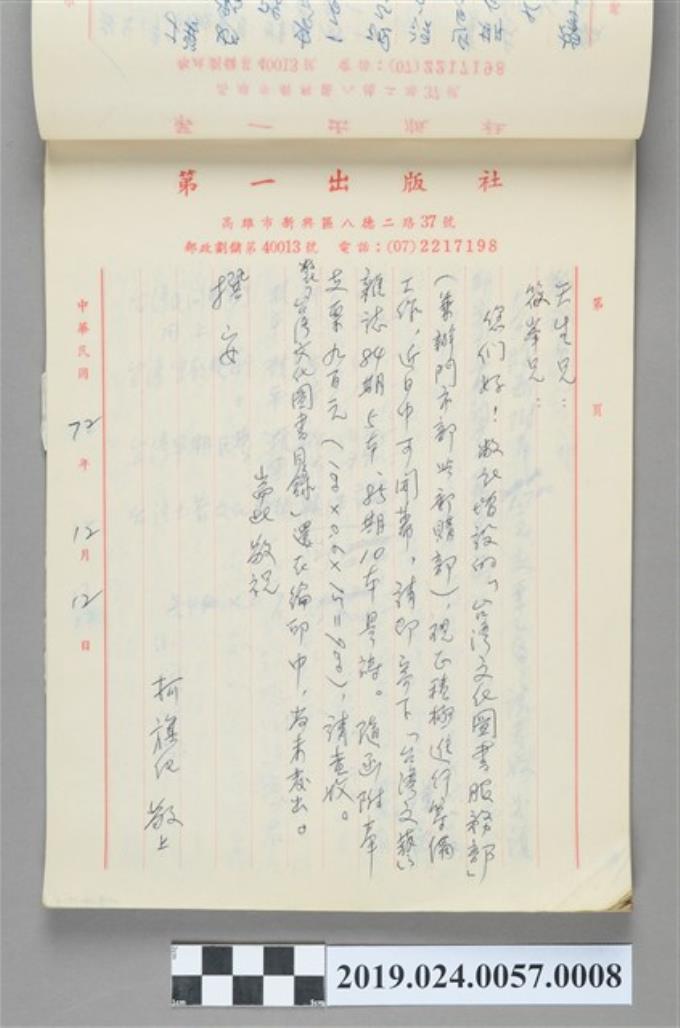 第一出版社
高雄市新興區八德二路37號
郵政劃儲第40013號 電話：(07)2217198
第 頁
天生兄：
筱峯兄：
您们好！敝社增設的「台湾文化圖書服務部」
(兼辦門市部与郵購部)，現正積極進行筹備
工作，近日中可開幕，請即寄下「台湾文藝」
雜誌84期5本、85期10本是禱。隨函附奉
支票九百元(100×0.6×15=900)，請查收。
台湾文化圖書目錄還在編印中，尚未發出。
耑此敬祝
撰安
柯旗化 敬上
中華民國72年12月12日
2019.024.0057.0008